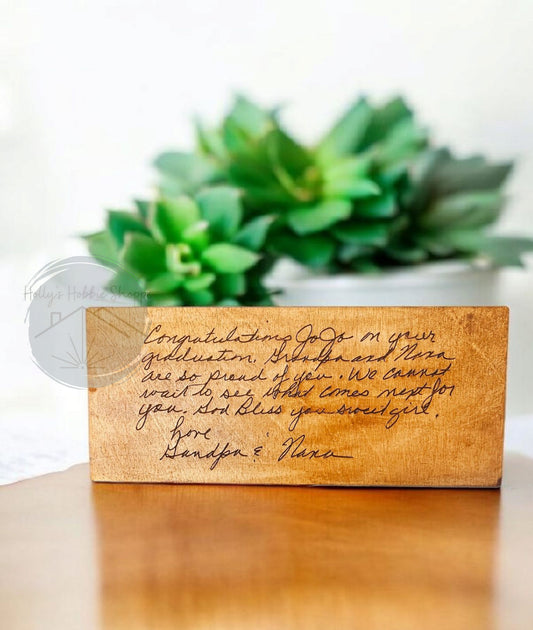 Holly's Hobbie Shoppe
Congratulations JoJo on your
graduation. Grandpa and Nana
are so proud of you. We cannot
wait to see what comes next for
you. God Bless you sweet girl.
Love
Grandpa & Nana